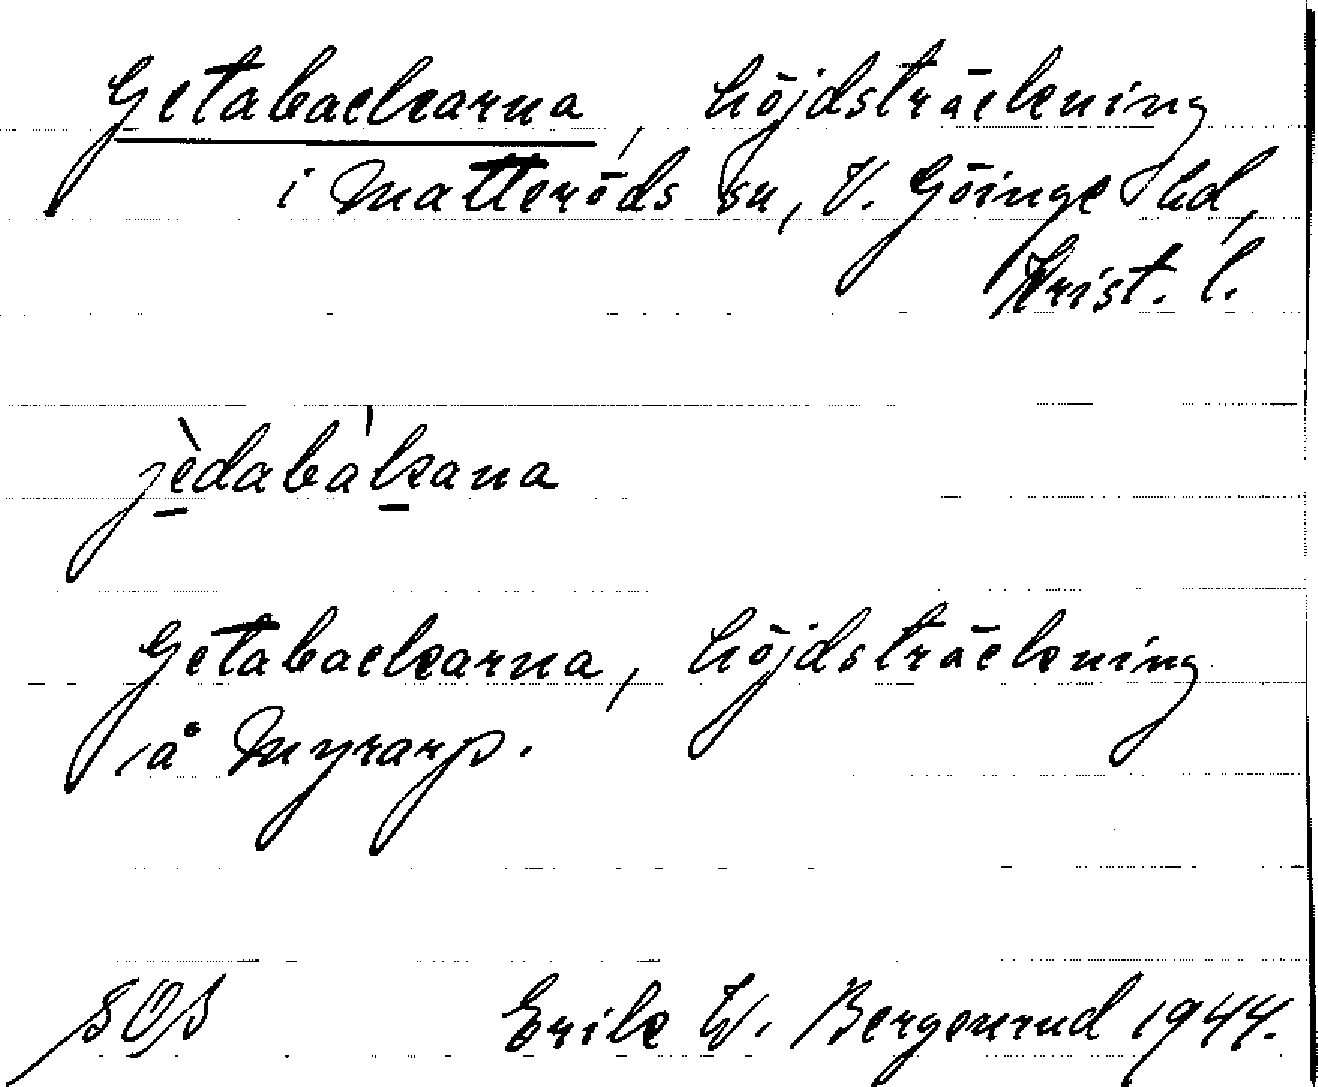 Getabackarna, höjdsträckning
i Matteröds sn, V. Göinge hd,
Krist. l.
jèdabàkana
Getabackarna, höjdsträckning
å Myrarp.
SOS Erik W. Bergenrud 1944.